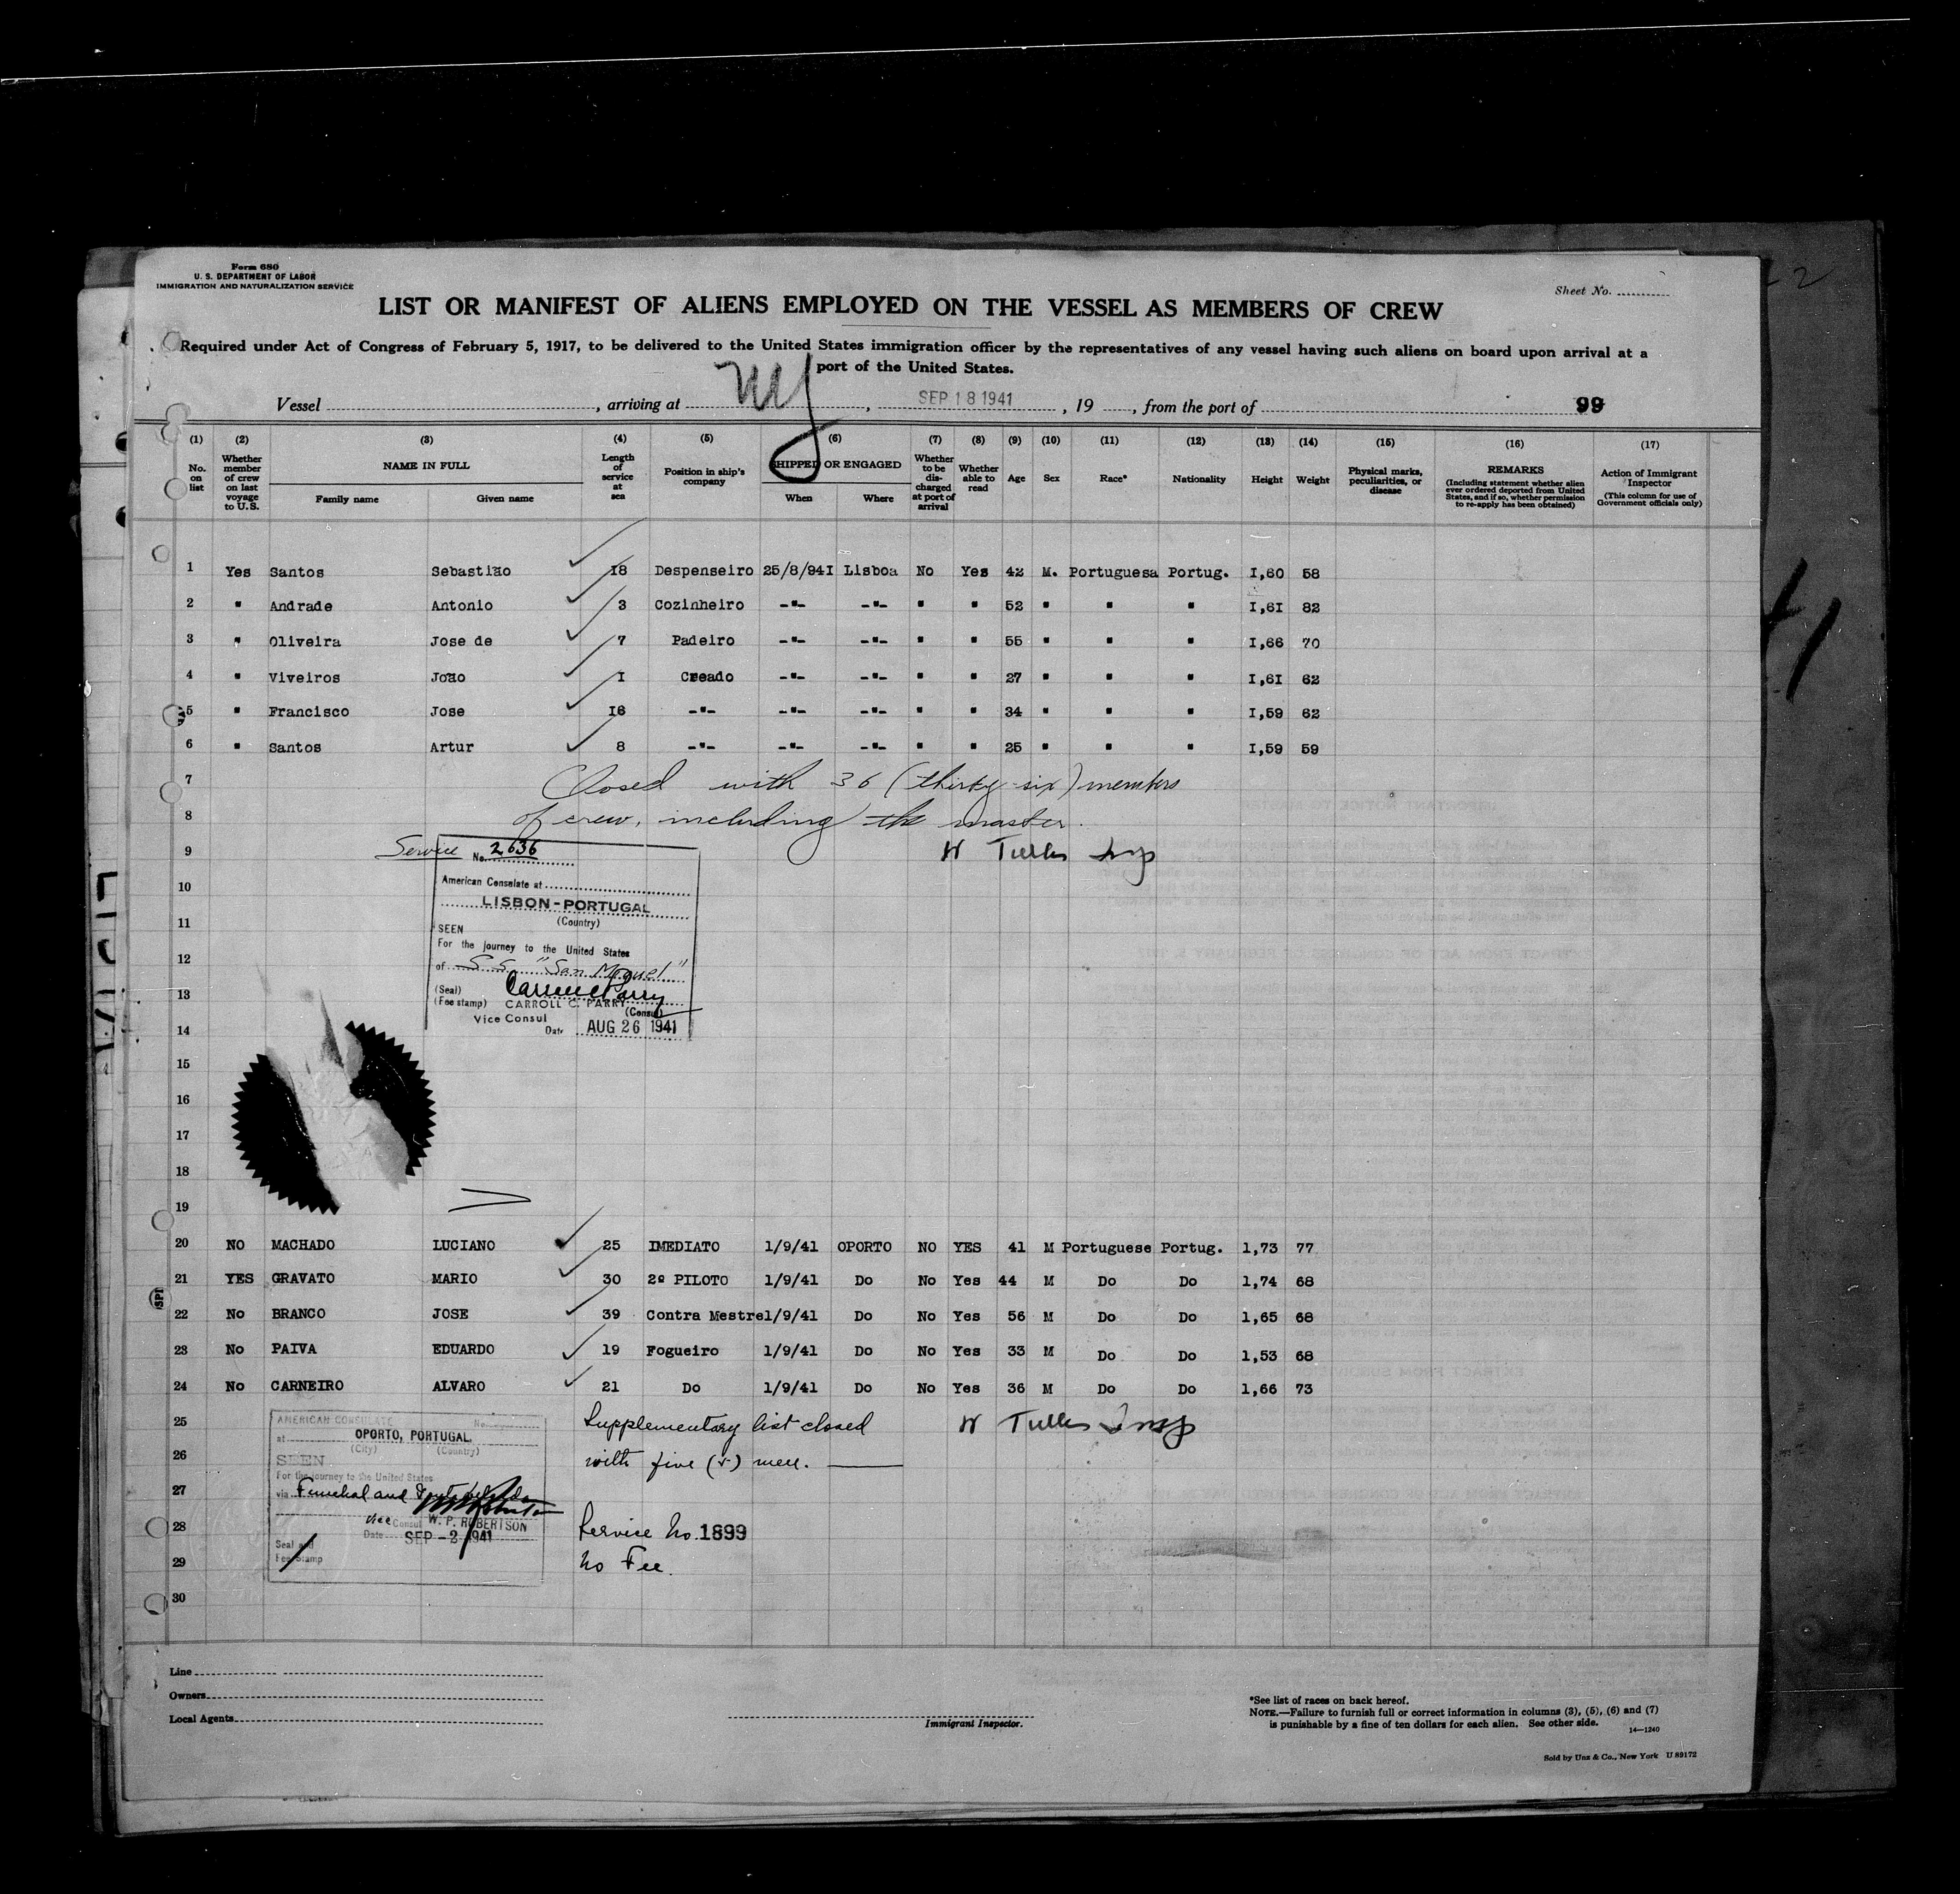 Form 680
U. S. DEPARTMENT OF LABOR
IMMIGRATION AND NATURALIZATION SERVICE
Sheet No.
LIST OR MANIFEST OF ALIENS EMPLOYED ON THE VESSEL AS MEMBERS OF CREW
Required under Act of Congress of February 5, 1917, to be delivered to the United States immigration officer by the representatives of any vessel having such aliens on board upon arrival at a
port of the United States.
Vessel , arriving at NY , SEP 18 1941 , 19 , from the port of 99
(1) (2) (3) (4) (5) (6) (7) (8) (9) (10) (11) (12) (13) (14) (15) (16) (17)
No. on list
Whether member of crew on last voyage to U.S.
NAME IN FULL
Family name Given name
Length of service at sea
Position in ship's company
SHIPPED OR ENGAGED
When Where
Whether to be discharged at port of arrival
Whether able to read
Age
Sex
Race*
Nationality
Height
Weight
Physical marks, peculiarities, or disease
REMARKS
(Including statement whether alien ever ordered deported from United States, and if so, whether permission to re-apply has been obtained)
Action of Immigrant Inspector
(This column for use of Government officials only)
1 Yes Santos Sebastião 18 Despenseiro 25/8/94I Lisboa No Yes 42 M. Portuguesa Portug. I,60 58
2 " Andrade Antonio 3 Cozinheiro -"- -"- " " 52 " " " I,6I 82
3 " Oliveira Jose de 7 Padeiro -"- -"- " " 55 " " " I,66 70
4 " Viveiros João I Creado -"- -"- " " 27 " " " I,6I 62
5 " Francisco Jose I6 -"- -"- -"- " " 34 " " " I,59 62
6 " Santos Artur 8 -"- -"- -"- " " 25 " " " I,59 59
7 Closed with 36 (thirty-six) members
8 of crew, including the master.
9 Service No. 2636
10 American Consulate at
LISBON-PORTUGAL
11 (Country)
SEEN
For the journey to the United States
12 of S.S. "San Miguel"
(Seal)
13 (Fee stamp) CARROLL C. PARRY
(Consul)
Vice Consul
14 Date AUG 26 1941
15
16
17
18
19
20 NO MACHADO LUCIANO 25 IMEDIATO 1/9/41 OPORTO NO YES 41 M Portuguese Portug. 1,73 77
21 YES GRAVATO MARIO 30 2º PILOTO 1/9/41 Do No Yes 44 M Do Do 1,74 68
22 No BRANCO JOSE 39 Contra Mestre 1/9/41 Do No Yes 56 M Do Do 1,65 68
23 No PAIVA EDUARDO 19 Fogueiro 1/9/41 Do No Yes 33 M Do Do 1,53 68
24 No CARNEIRO ALVARO 21 Do 1/9/41 Do No Yes 36 M Do Do 1,66 73
25 Supplementary list closed
26 with five (5) men.
AMERICAN CONSULATE No.
at OPORTO, PORTUGAL
(City) (Country)
SEEN
For the journey to the United States
27 via Funchal and
28 Vice Consul W. P. ROBERTSON
Date SEP -2 1941
Seal and
Fee Stamp
Service No. 1899
29 No Fee.
30
Line
Owners
Local Agents
Immigrant Inspector.
*See list of races on back hereof.
NOTE.—Failure to furnish full or correct information in columns (3), (5), (6) and (7)
is punishable by a fine of ten dollars for each alien. See other side.
14—1240
Sold by Unz & Co., New York U 89172